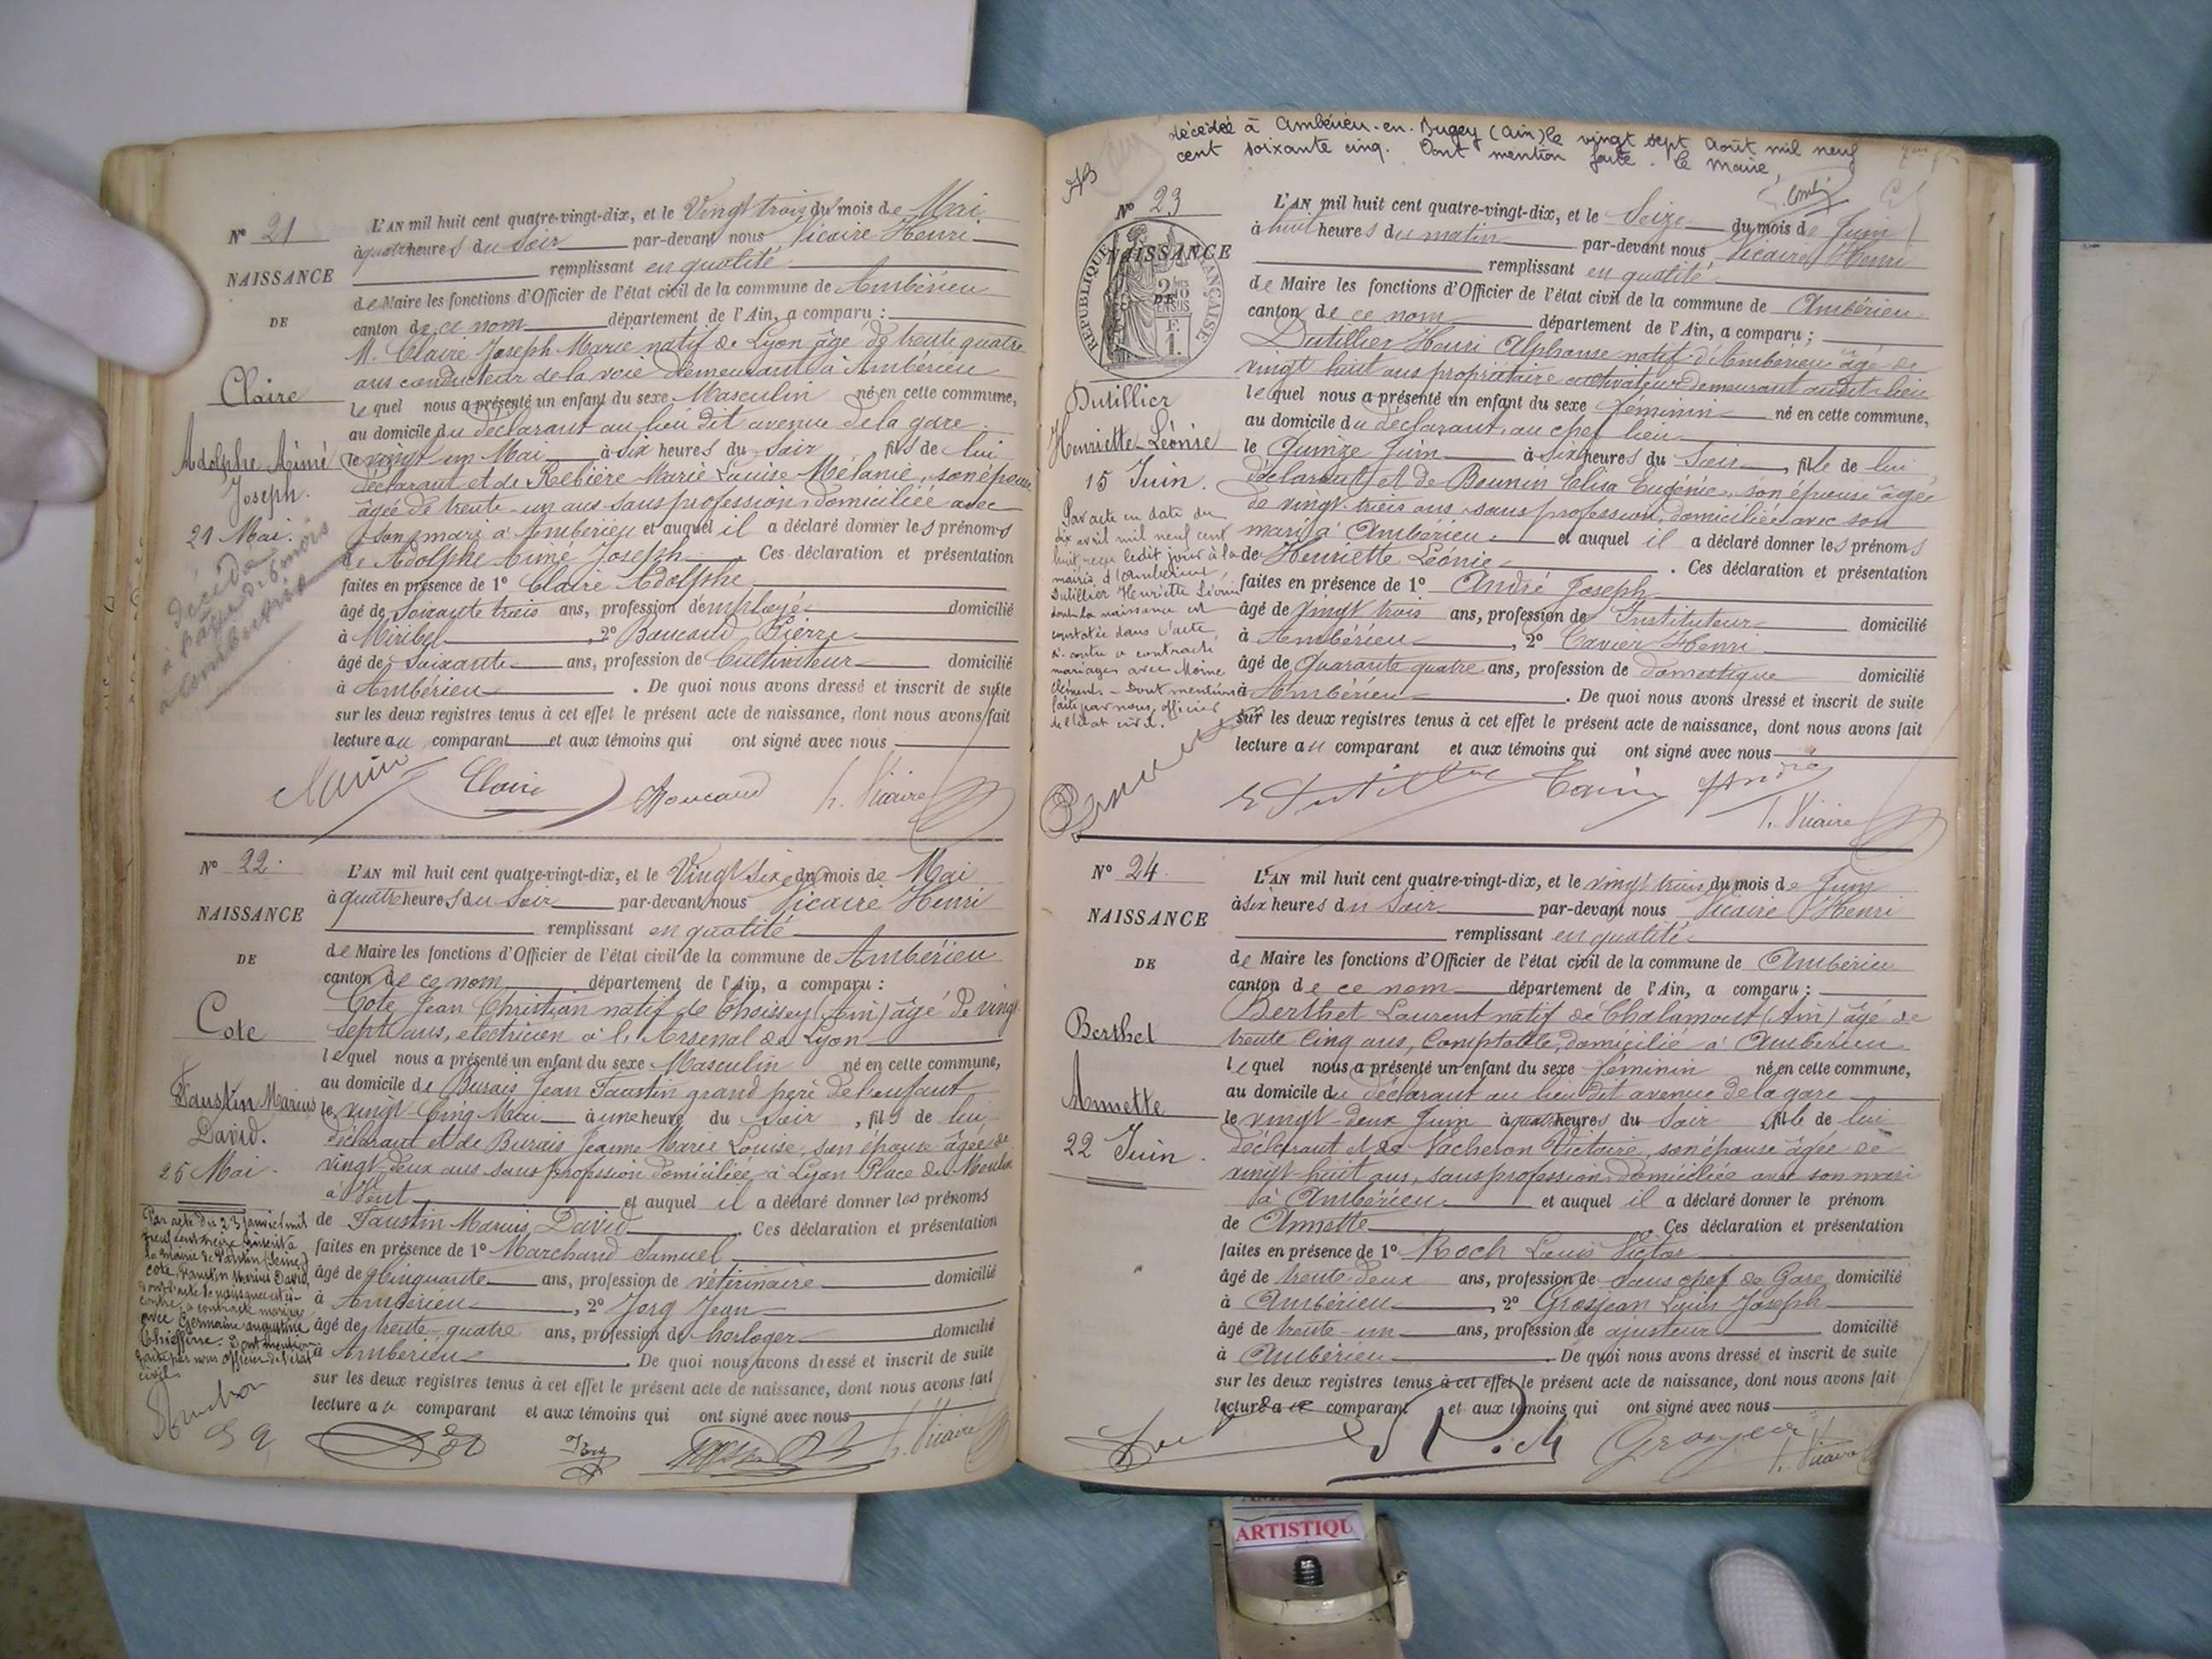 N° 21
NAISSANCE
DE
Claire
Adolphe Aimé
Joseph.
21 Mai.
décédé
à l'âge de 6 mois
à
L'AN mil huit cent quatre-vingt-dix, et le Vingt trois du mois de Mai
à quatre heures du Soir par-devant nous Vicaire Henri
remplissant en qualité
de Maire les fonctions d'Officier de l'état civil de la commune de Ambérieu
canton de ce nom département de l'Ain, a comparu :
M. Claire Joseph Marie natif de Lyon âgé de trente quatre
ans conducteur de la voie demeurant à Ambérieu
lequel nous a présenté un enfant du sexe Masculin né en cette commune,
au domicile du déclarant au lieu dit avenue de la gare
le vingt un Mai à six heures du Soir fils de lui
déclarant et de Rebière Marie Louise Mélanie, son épouse
âgée de trente-un ans sans profession domiciliée avec
son mari à Ambérieu et auquel il a déclaré donner les prénoms
de Adolphe Aimé Joseph. Ces déclaration et présentation
faites en présence de 1° Claire Adolphe
âgé de Soixante trois ans, profession d'employé domicilié
à Miribel, 2° Boucaud Pierre
âgé de soixante ans, profession de Cultivateur domicilié
à Ambérieu. De quoi nous avons dressé et inscrit de suite
sur les deux registres tenus à cet effet le présent acte de naissance, dont nous avons fait
lecture au comparant et aux témoins qui ont signé avec nous
Claire Boucaud h. Vicaire
N° 22
NAISSANCE
DE
Cote
Faustin Marius
David.
25 Mai.
Par acte du 23 Janvier mil
neuf cent treize inscrit à
la mairie de Pantin (Seine)
Cote, Faustin Marius David
dont l'acte de naissance est ci-
contre, a contracté mariage
avec Germaine Augustine
Dont mention
faite par nous officier de l'état
civil.
L'AN mil huit cent quatre-vingt-dix, et le Vingt Six du mois de Mai
à quatre heures du Soir par-devant nous Vicaire Henri
remplissant en qualité
de Maire les fonctions d'Officier de l'état civil de la commune de Ambérieu
canton de ce nom département de l'Ain, a comparu :
Cote Jean Christian natif de Thoissey (Ain) âgé de vingt
sept ans, électricien à l'Arsenal de Lyon
lequel nous a présenté un enfant du sexe Masculin né en cette commune,
au domicile de Burais Jean Faustin grand père de l'enfant
le vingt Cinq Mai à une heure du Soir, fils de lui
déclarant et de Burais Jeanne Marie Louise, son épouse âgée de
vingt-deux ans sans profession domiciliée à Lyon Place du Moulin
à Vent et auquel il a déclaré donner les prénoms
de Faustin Marius David. Ces déclaration et présentation
faites en présence de 1° Marchand Samuel
âgé de Cinquante ans, profession de vétérinaire domicilié
à Ambérieu, 2° Jorg Jean
âgé de trente-quatre ans, profession de horloger domicilié
à Ambérieu. De quoi nous avons dressé et inscrit de suite
sur les deux registres tenus à cet effet le présent acte de naissance, dont nous avons fait
lecture au comparant et aux témoins qui ont signé avec nous
Jorg h. Vicaire
décédée à Ambérieu-en-Bugey (Ain) le vingt sept Août mil neuf
cent soixante cinq. Dont mention faite. Le Maire,
N° 23
NAISSANCE
DE
RÉPUBLIQUE FRANÇAISE
Dutillier
Henriette-Léonie
15 Juin.
Par acte en date du
dix avril mil neuf cent
huit reçu ledit jour à la
mairie d'Ambérieu,
Dutillier Henriette Léonie
dont la naissance est
constatée dans l'acte
ci-contre a contracté
mariage avec Moine
Clément. Dont mention
faite par nous, officier
de l'état civil.
L'AN mil huit cent quatre-vingt-dix, et le Seize du mois de Juin
à huit heures du matin par-devant nous Vicaire Henri
remplissant en qualité
de Maire les fonctions d'Officier de l'état civil de la commune de Ambérieu
canton de ce nom département de l'Ain, a comparu ;
Dutillier Henri Alphonse natif d'Ambérieu âgé de
vingt huit ans propriétaire cultivateur demeurant audit lieu
lequel nous a présenté un enfant du sexe féminin né en cette commune,
au domicile du déclarant, au chef lieu
le Quinze Juin à Six heures du Soir, fille de lui
déclarant et de Bounin Elisa Eugénie, son épouse âgée
de vingt-trois ans sans profession, domiciliée avec son
mari à Ambérieu et auquel il a déclaré donner les prénoms
de Henriette Léonie. Ces déclaration et présentation
faites en présence de 1° André Joseph
âgé de vingt trois ans, profession de Instituteur domicilié
à Ambérieu, 2° Cavier Henri
âgé de Quarante quatre ans, profession de domestique domicilié
à Ambérieu. De quoi nous avons dressé et inscrit de suite
sur les deux registres tenus à cet effet le présent acte de naissance, dont nous avons fait
lecture au comparant et aux témoins qui ont signé avec nous
André
h. Vicaire
N° 24
NAISSANCE
DE
Berthet
Annette
22 Juin.
L'AN mil huit cent quatre-vingt-dix, et le vingt trois du mois de Juin
à six heures du Soir par-devant nous Vicaire Henri
remplissant en qualité
de Maire les fonctions d'Officier de l'état civil de la commune de Ambérieu
canton de ce nom département de l'Ain, a comparu :
Berthet Laurent natif de Chalamont (Ain) âgé de
trente Cinq ans, Comptable, domicilié à Ambérieu
lequel nous a présenté un enfant du sexe féminin né en cette commune,
au domicile du déclarant au lieu dit avenue de la gare
le vingt-deux Juin à quatre heures du Soir fille de lui
déclarant et de Vacheron Victoire, son épouse âgée de
vingt-huit ans, sans profession domiciliée avec son mari
à Ambérieu et auquel il a déclaré donner le prénom
de Annette. Ces déclaration et présentation
faites en présence de 1° Roch Louis Victor
âgé de trente-deux ans, profession de sous chef de Gare domicilié
à Ambérieu, 2° Grosjean Louis Joseph
âgé de trente-un ans, profession de ajusteur domicilié
à Ambérieu. De quoi nous avons dressé et inscrit de suite
sur les deux registres tenus à cet effet le présent acte de naissance, dont nous avons fait
lecture au comparant et aux témoins qui ont signé avec nous
Roch Grosjean h. Vicaire
ARTISTIQU